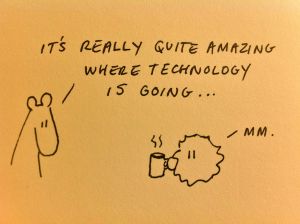 IT'S REALLY QUITE AMAZING
WHERE TECHNOLOGY
IS GOING...
MM.